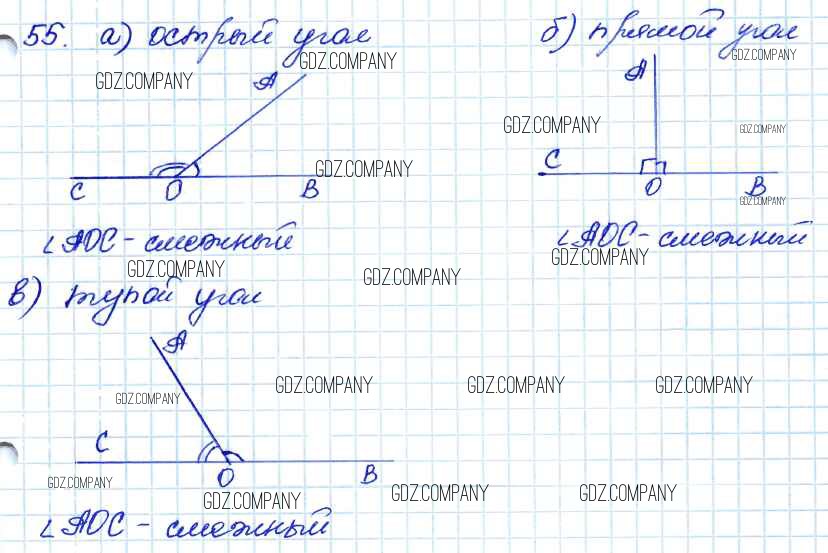 55. а) острый угол
б) прямой угол
GDZ.COMPANY
GDZ.COMPANY
GDZ.COMPANY
A
A
GDZ.COMPANY
GDZ.COMPANY
GDZ.COMPANY
C O B
C O B
GDZ.COMPANY
∠AOC - смежный
∠AOC - смежный
GDZ.COMPANY
GDZ.COMPANY
GDZ.COMPANY
в) тупой угол
A
GDZ.COMPANY
GDZ.COMPANY
GDZ.COMPANY
GDZ.COMPANY
C O B
GDZ.COMPANY
GDZ.COMPANY
GDZ.COMPANY
GDZ.COMPANY
∠AOC - смежный